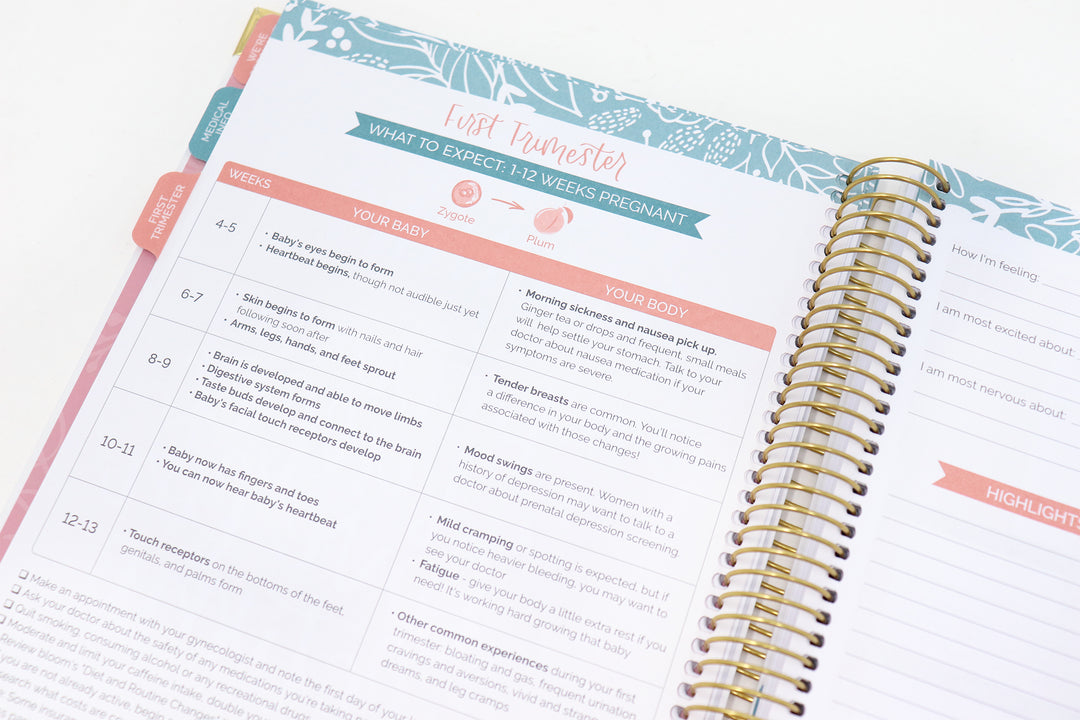 WE'RE
MEDICAL
INFO
FIRST
TRIMESTER
First Trimester
WHAT TO EXPECT: 1-12 WEEKS PREGNANT
Zygote
Plum
WEEKS
YOUR BABY
YOUR BODY
4-5
• Baby's eyes begin to form
• Heartbeat begins, though not audible just yet
• Morning sickness and nausea pick up.
Ginger tea or drops and frequent, small meals
will help settle your stomach. Talk to your
doctor about nausea medication if your
symptoms are severe.
6-7
• Skin begins to form with nails and hair
following soon after
• Arms, legs, hands, and feet sprout
• Tender breasts are common. You'll notice
a difference in your body and the growing pains
associated with those changes!
8-9
• Brain is developed and able to move limbs
• Digestive system forms
• Taste buds develop and connect to the brain
• Baby's facial touch receptors develop
• Mood swings are present. Women with a
history of depression may want to talk to a
doctor about prenatal depression screening.
10-11
• Baby now has fingers and toes
• You can now hear baby's heartbeat
• Mild cramping or spotting is expected, but if
you notice heavier bleeding, you may want to
see your doctor
• Fatigue - give your body a little extra rest if you
need! It's working hard growing that baby
12-13
• Touch receptors on the bottoms of the feet,
genitals, and palms form
• Other common experiences during your first
trimester: bloating and gas, frequent urination
cravings and aversions, vivid and strange
dreams, and leg cramps
❏ Make an appointment with your gynecologist and note the first day of your
❏ Ask your doctor about the safety of any medications you're taking
❏ Quit smoking, consuming alcohol, or any recreational drugs
❏ Moderate and limit your caffeine intake, double your
Review bloom's "Diet and Routine Changes
you are not already active, begin
search what costs are
Some insurance
How I'm feeling:
I am most excited about:
I am most nervous about:
HIGHLIGHTS